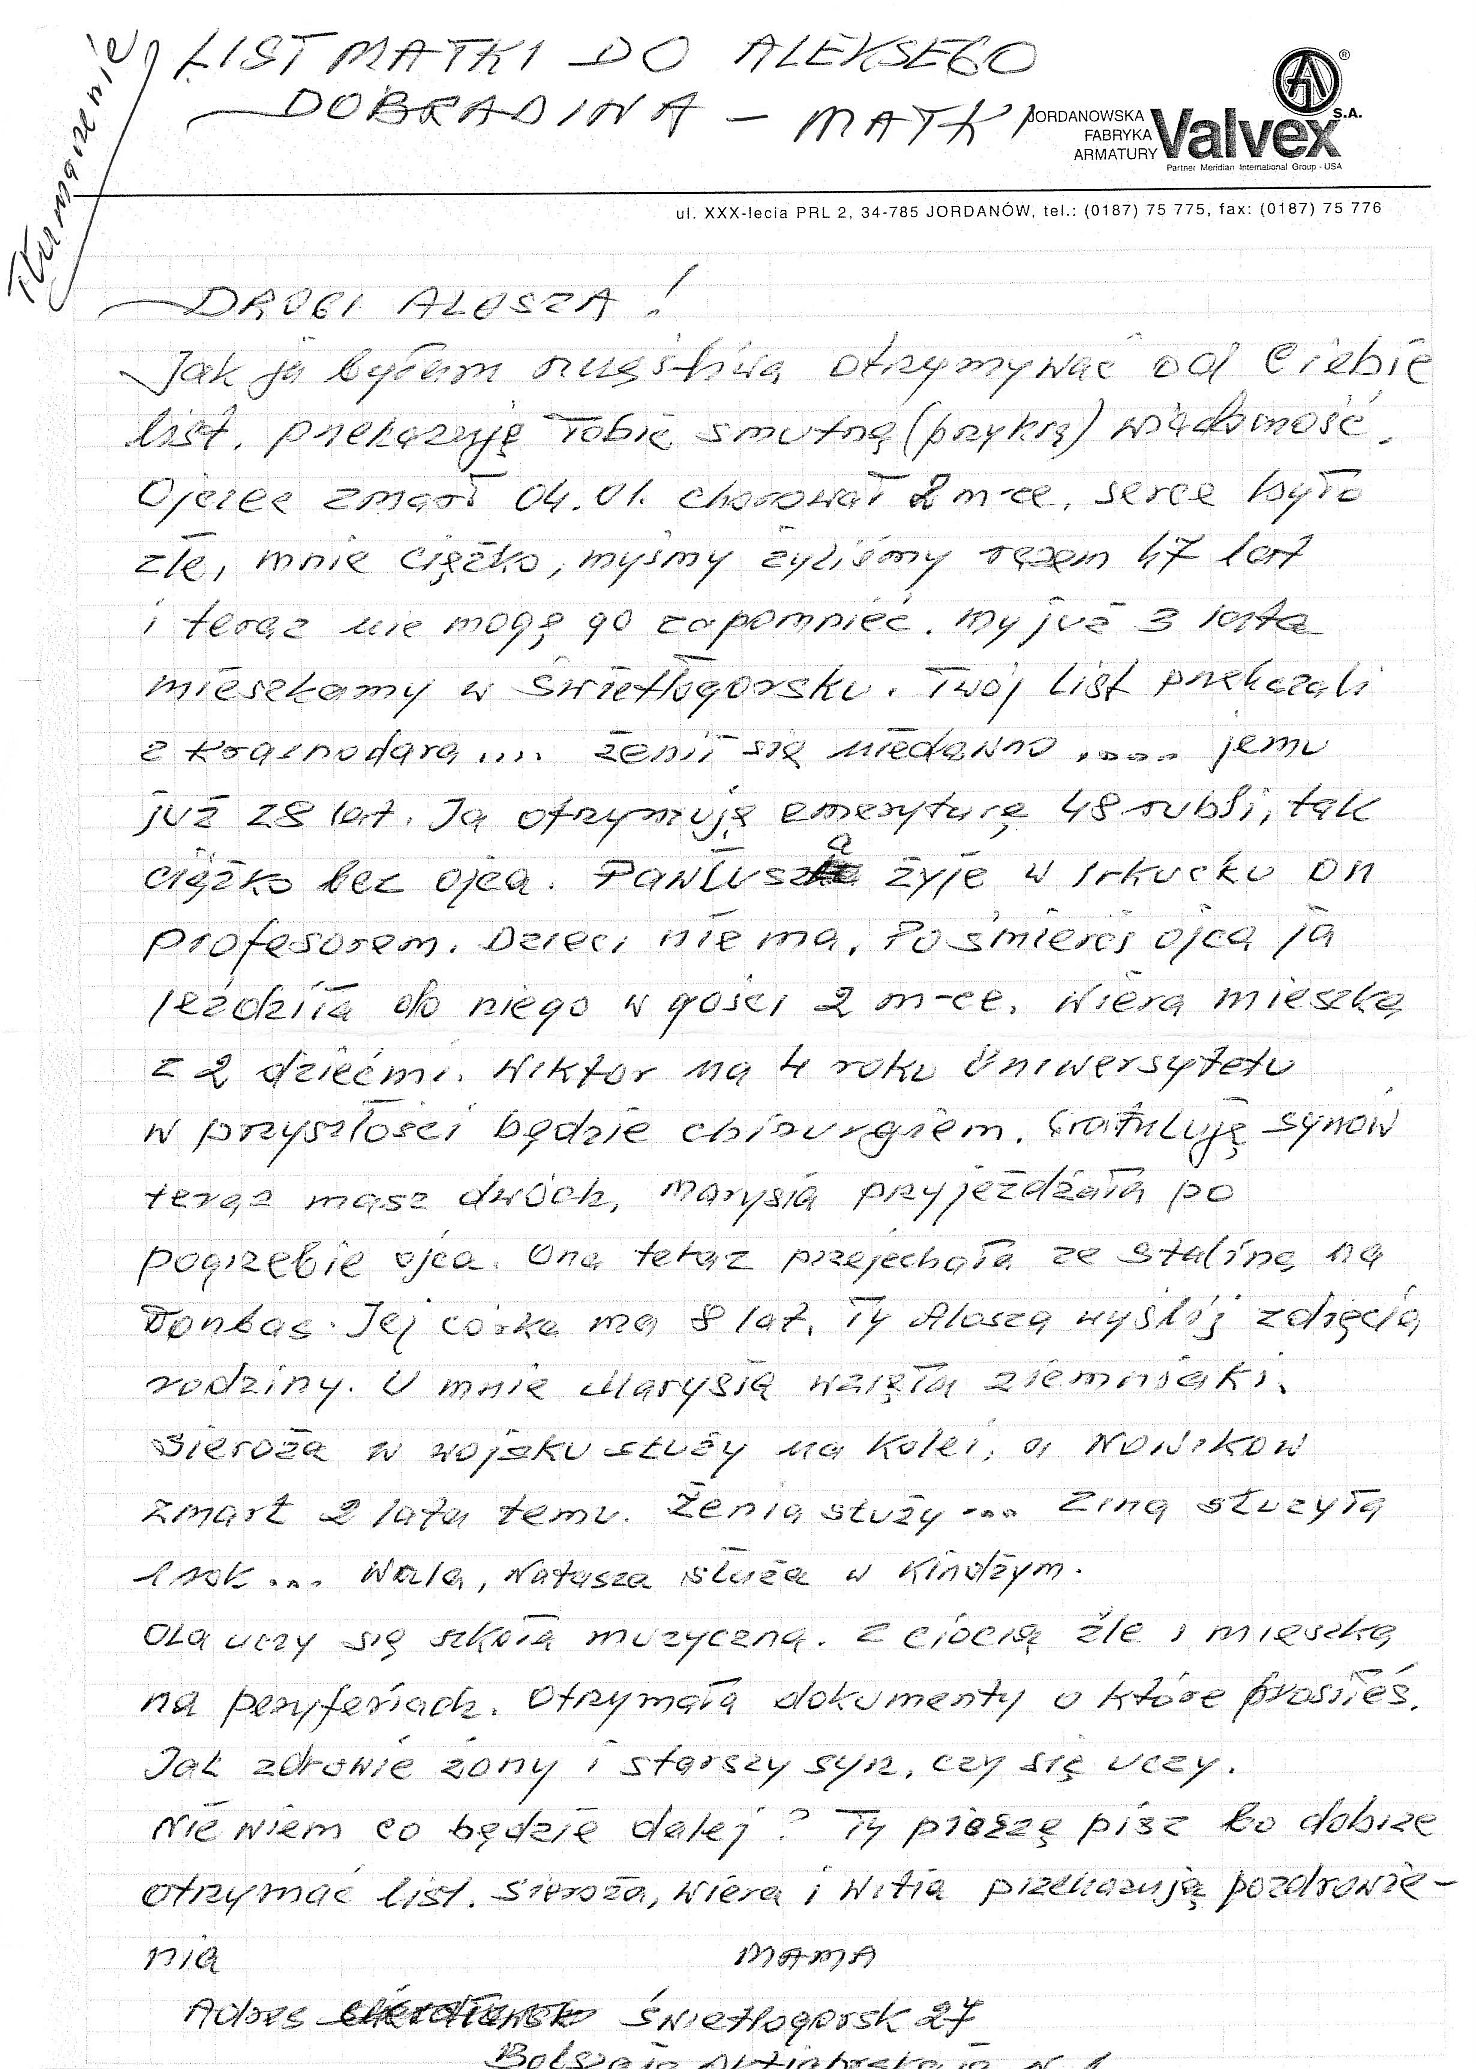 Tłumaczenie
LIST MATKI DO ALEKSEGO
DOBRADINA – MATKI
JORDANOWSKA
FABRYKA
ARMATURY
Valvex S.A.
Partner Meridian International Group - USA
ul. XXX-lecia PRL 2, 34-785 JORDANÓW, tel.: (0187) 75 775, fax: (0187) 75 776
DROGI ALOSZA!
Jak ja byłam szczęśliwa otrzymywać od Ciebie
list. przekazuję Tobie smutną (przykrą) wiadomość.
Ojciec zmarł 04.01. chorował 2 m-ce, serce było
złe, mnie ciężko, myśmy żyliśmy razem 47 lat
i teraz nie mogę go zapomnieć. my już 3 lata
mieszkamy w Świetłogorsku. Twój list przekazali
z Krasnodara.... Żenił się niedawno .... jemu
już 28 lat. Ja otrzymuję emeryturę 48 rubli, tak
ciężko bez ojca. Pawlusza żyje w Irkucku on
profesorem. Dzieci nie ma. Po śmierci ojca ja
jeździła do niego w gości 2 m-ce. Wiera mieszka
z 2 dziećmi. Wiktor na 4 roku Uniwersytetu
w przyszłości będzie chirurgiem. Gratuluję synów
teraz masz dwóch, Marysia przyjeżdżała po
pogrzebie ojca. Ona teraz przejechała ze Stalina na
Donbas. Jej córka ma 8 lat. Ty Alosza wyślij zdjęcia
rodziny. U mnie Marysia wzięła ziemniaki.
Sieroża w wojsku służy na kolei, a Nowikow
zmarł 2 lata temu. Żenia służy ... Zina służyła
1 rok ... Wala, Natasza służa w Kindżym.
Ola uczy się szkoła muzyczna. Z ciocią źle i mieszka
na peryferiach. Otrzymała dokumenty o które prosiłeś.
Jak zdrowie żony i starszy syn, czy się uczy.
Nie wiem co będzie dalej? Ty pisz bo dobrze
otrzymać list. Sieroża, Wiera i Witia przekazują pozdrowie-
nia MAMA
Adres Świetłogorsk 27